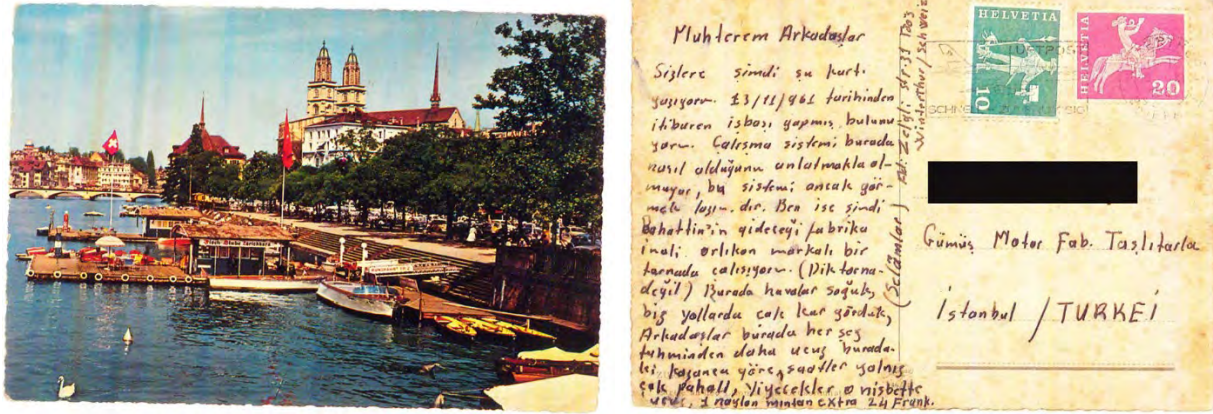 Muhterem Arkadaşlar
Sizlere şimdi şu kartı
yazıyorum. 13/11/961 tarihinden
itibaren işbaşı yapmış bulunu
yorum. Çalışma sistemi burada
nasıl olduğunu anlatmakla ol-
muyor, bu sistemi ancak gör-
mek lazım.dır. Ben ise şimdi
Bahattin'in gideceği fabrika
imali orlikon markalı bir
tornada çalışıyorum. (Dik torna-
değil) Burada havalar soğuk,
biz yollarda çok kar gördük,
Arkadaşlar burada her şey
tahminden daha ucuz burada-
ki kazanca göre, saatler yalnız
çok pahalı, Yiyecekler o nisbette
ucuz, 1 naylon mintan extra 24 Frank.
(Selâmlar)
Ad: Zelgli str: 33 1203
Winterthur / Schweiz
HELVETIA
10
HELVETIA
20
LUFTPOS
Gümüş Motor Fab. Taşlıtarla
İstanbul / TURKEİ